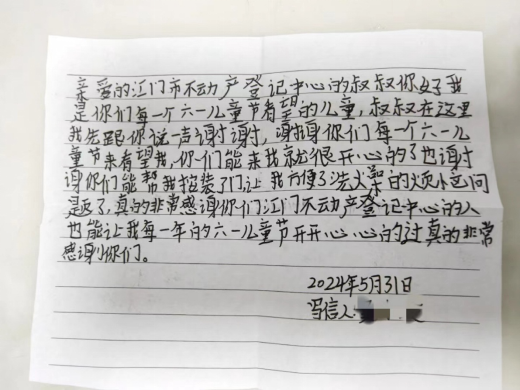 亲爱的江门市不动产登记中心的叔叔你好我
是你们每一个六一儿童节看望的儿童，叔叔在这里
我先跟你说一声谢谢，谢谢你们每一个六一儿
童节来看望我，你们能来我就很开心的了也谢
谢你们能帮我抢装了门让我方便了洗澡的烦恼问
题了，真的非常感谢你们江门不动产登记中心的人
也能让我每一年的六一儿童节开开心心的过真的非常
感谢你们。
2024年5月31日
写信人：